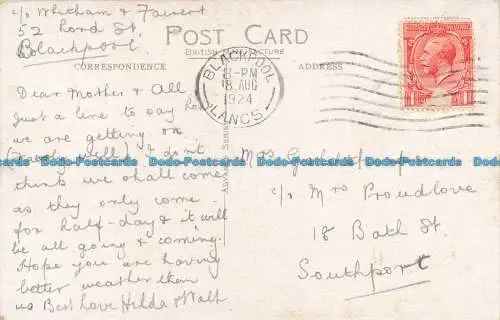 c/o Whitham & Fawcett
52 Lord St.
Blackpool
POST CARD
BRITISH MANUFACTURE
CORRESPONDENCE
ADDRESS
BLACKPOOL
8-PM
18 AUG
1924
LANCS
Dear Mother & All
Just a line to say
we are getting on
well. I don't
think we shall come
as they only come
for half-day & it will
be all going & coming.
Hope you are having
better weather than
us Best Love Hilda & Walt
Mrs
c/o Mrs Proudlove
18 Bath St.
Southport
Dado-Postcards Dado-Postcards Dado-Postcards Dado-Postcards